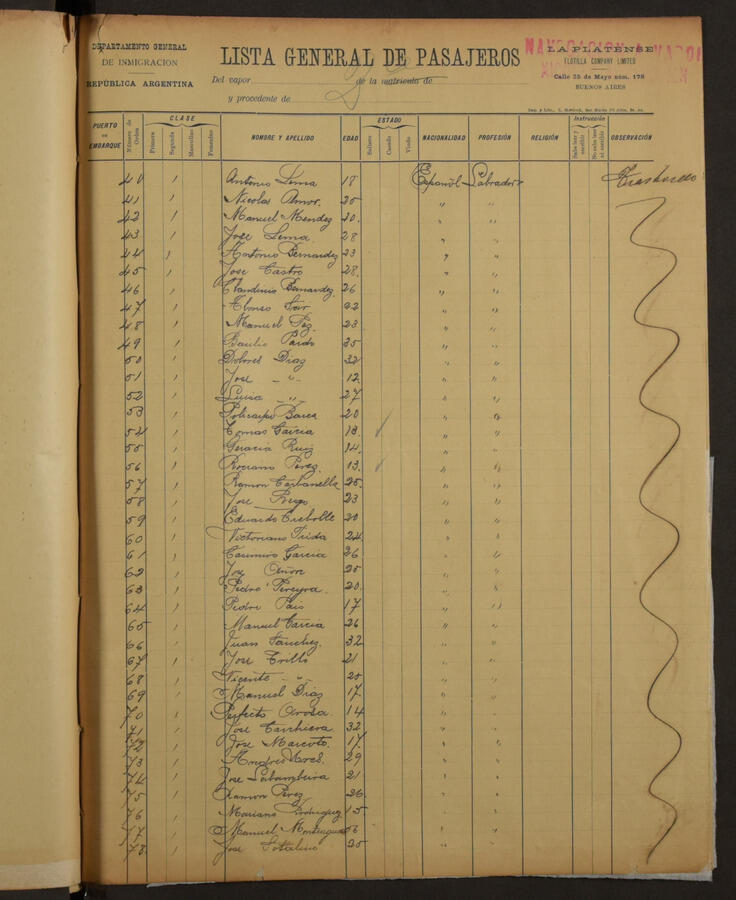 DEPARTAMENTO GENERAL
DE INMIGRACION
REPÚBLICA ARGENTINA
LISTA GENERAL DE PASAJEROS
Del vapor de la matrícula de
y procedente de 2
NAVEGACION
LA PLATENSE
FLOTILLA COMPANY LIMITED
Calle 25 de Mayo núm. 178
BUENOS AIRES
PUERTO DE EMBARQUE Número de Orden CLASE Primera Segunda Masculino Femenino NOMBRE Y APELLIDO EDAD ESTADO Soltero Casado Viudo NACIONALIDAD PROFESIÓN RELIGIÓN Instrucción Sabe leer y escribir No sabe leer ni escribir OBSERVACIÓN
40 / Antonio Lema 18 Español Labrador
41 / Nicolas Amor 25 " "
42 / Manuel Mendez 20 " "
43 / Jose Lema 28 " "
44 / Antonio Bernardez 23 " "
45 / Jose Castro 28 " "
46 / Claudinio Bernardez 26 " "
47 / Alonso 22 " "
48 / Manuel Paz 23 " "
49 / Basilio Pardo 25 " "
50 / Dolores Diaz 32 " "
51 / Jose " 12 " "
52 / Luisa " 27 " "
53 / Policarpo Barca 20 " "
54 / Tomas Garcia 18 " "
55 / Geracia Ruiz 14 " "
56 / Rosiano Perez 13 " "
57 / Ramon Carbanella 25 " "
58 / Jose 23 " "
59 / Eduardo 20 " "
60 / Victoriano 24 " "
61 / Casimiro Garcia 26 " "
62 / Jose Añon 25 " "
63 / Pedro Pereyra 20 " "
64 / Pedro Pais 17 " "
65 / Manuel Garcia 26 " "
66 / Juan Sanchez 32 " "
67 / Jose Trillo 21 " "
68 / Vicente " 25 " "
69 / Manuel Diaz 17 " "
70 / Perfecto Orosa 14 " "
71 / Jose 32 " "
72 / Jose Marcote 17 " "
73 / Andres Mares 29 " "
74 / Jose 21 " "
75 / Ramon Perez 26 " "
76 / Mariano Rodriguez 15 " "
77 / Manuel 56 " "
78 / Jose Sotelino 25 " "